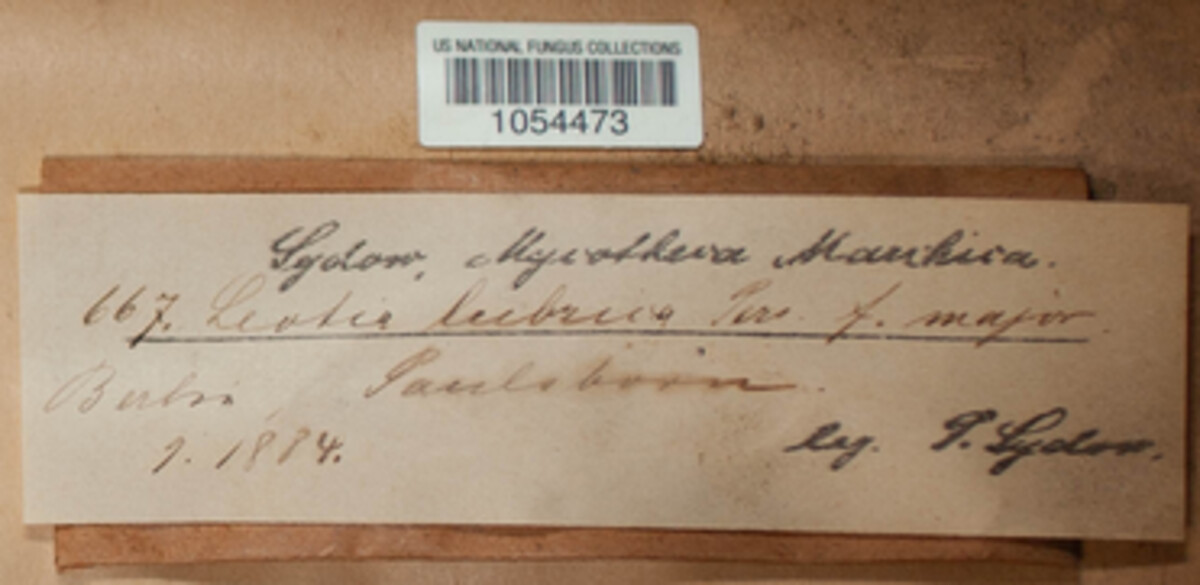 US NATIONAL FUNGUS COLLECTIONS
1054473
Sydow, Mycotheca Marchica.
667. Leotia lubrica Pers. f. major
Berlin, Paulsborn.
9. 1884.
leg. P. Sydow.